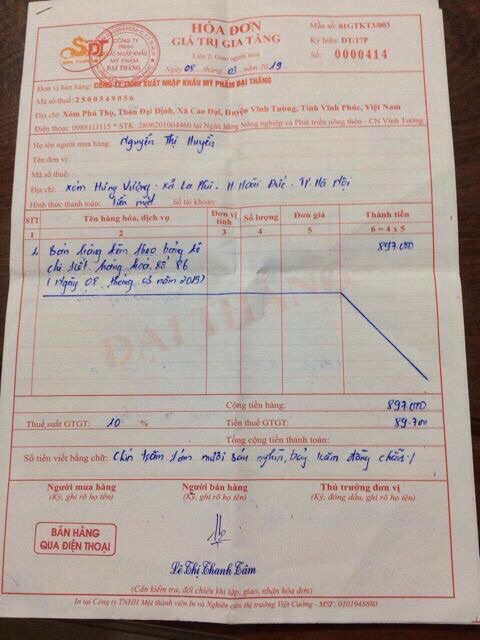 HÓA ĐƠN
GIÁ TRỊ GIA TĂNG
Liên 2: Giao người mua
Ngày 08 tháng 03 năm 2019
Mẫu số: 01GTKT3/003
Ký hiệu: DT/17P
Số: 0000414
SDT
CÔNG TY
TNHH
XUẤT NHẬP KHẨU
MỸ PHẨM
ĐẠI THĂNG
Đơn vị bán hàng: CÔNG TY TNHH XUẤT NHẬP KHẨU MỸ PHẨM ĐẠI THĂNG
Mã số thuế: 2500549056
Địa chỉ: Xóm Phú Thọ, Thôn Đại Định, Xã Cao Đại, Huyện Vĩnh Tường, Tỉnh Vĩnh Phúc, Việt Nam
Điện thoại: 0988111115 * STK: 2806201004460 tại Ngân hàng Nông nghiệp và Phát triển nông thôn - CN Vĩnh Tường
Họ tên người mua hàng: Nguyễn Thị Huyền
Tên đơn vị:
Mã số thuế:
Địa chỉ: Xóm Hùng Vương - Xã La Phù - H. Hoài Đức - TP Hà Nội
Hình thức thanh toán: Tiền mặt Số tài khoản:
STT Tên hàng hóa, dịch vụ Đơn vị tính Số lượng Đơn giá Thành tiền
1 2 3 4 5 6 = 4 x 5
1. Bán hàng kèm theo bảng kê 897.000
chi tiết hàng hoá số 86
(ngày 08 tháng 03 năm 2019)
ĐẠI THĂNG
Cộng tiền hàng: 897.000
Thuế suất GTGT: 10 % Tiền thuế GTGT: 89.700
Tổng cộng tiền thanh toán:
Số tiền viết bằng chữ: Chín trăm tám mươi sáu nghìn, bảy trăm đồng chẵn./
Người mua hàng Người bán hàng Thủ trưởng đơn vị
(Ký, ghi rõ họ tên) (Ký, ghi rõ họ tên) (Ký, đóng dấu, ghi rõ họ tên)
BÁN HÀNG
QUA ĐIỆN THOẠI
Lê Thị Thanh Tâm
(Cần kiểm tra, đối chiếu khi lập, giao, nhận hóa đơn)
In tại Công ty TNHH Một thành viên In và Nghiên cứu thị trường Việt Cường - MST: 0101948880